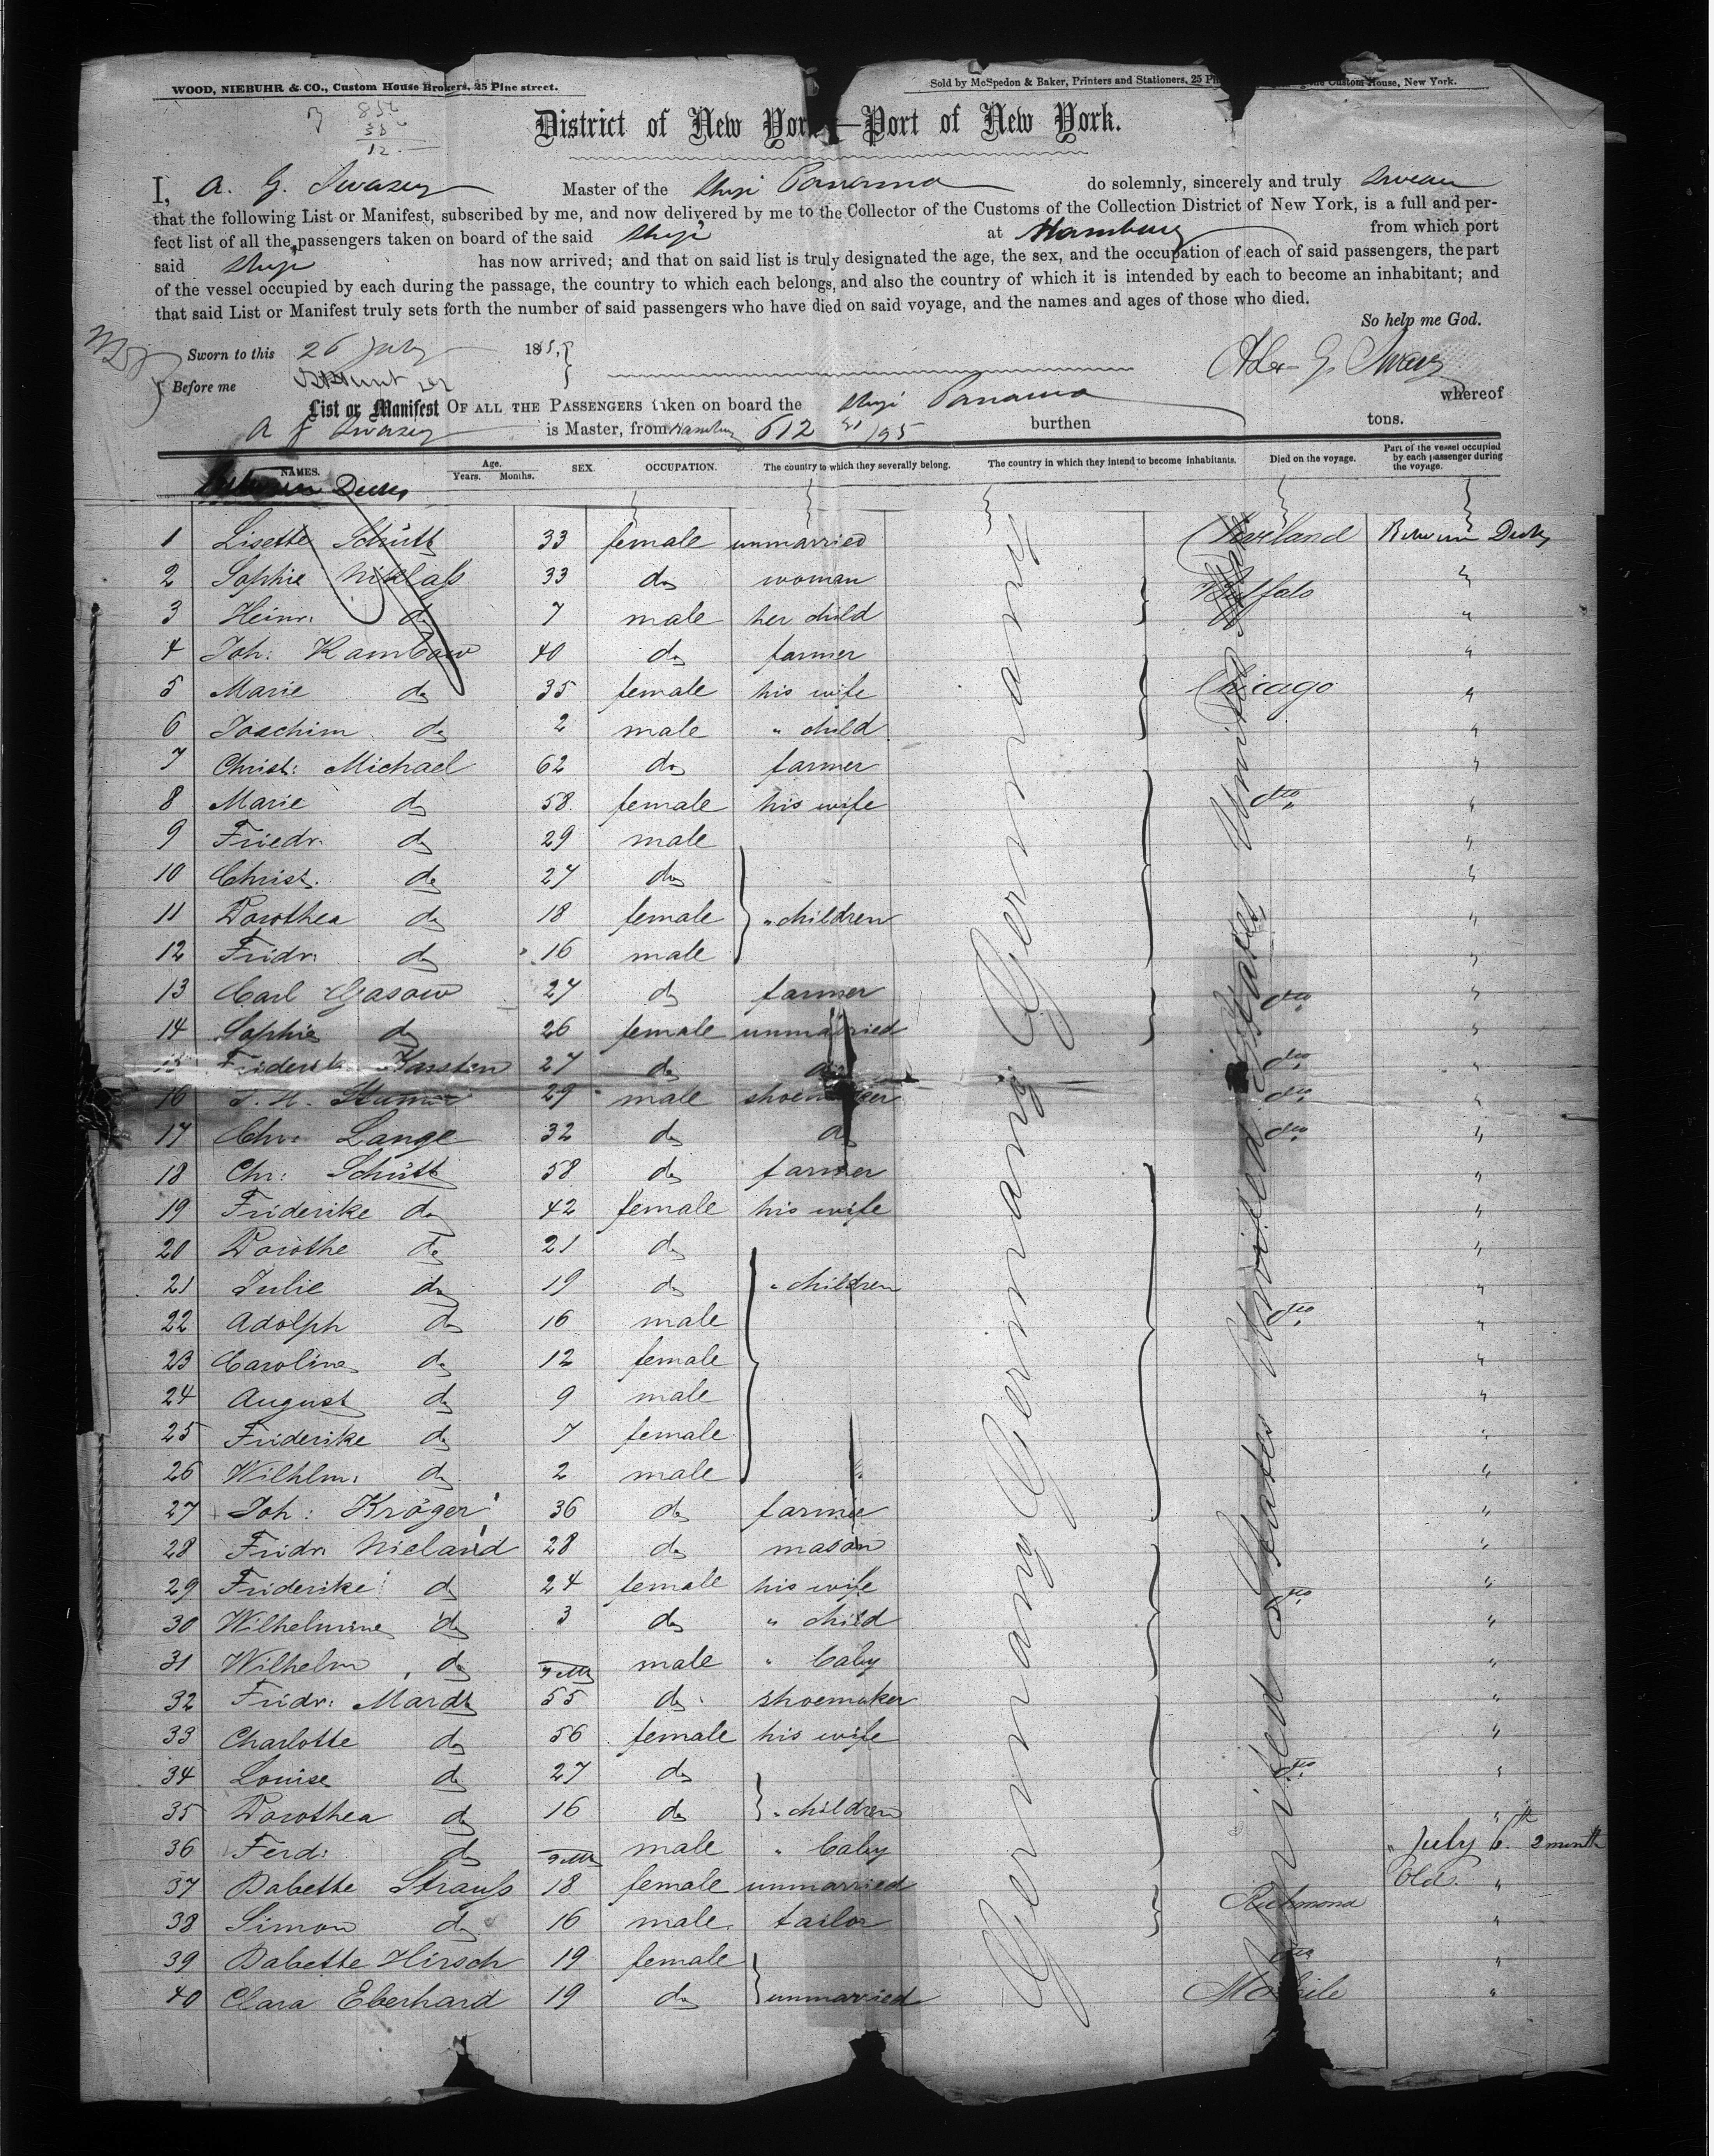 WOOD, NIEBUHR & CO., Custom House Brokers, 25 Pine street.
Sold by McSpedon & Baker, Printers and Stationers, 25 Custom House, New York.
District of New York—Port of New York.
I, A. G. Swasey Master of the Ship Panama do solemnly, sincerely and truly swear
that the following List or Manifest, subscribed by me, and now delivered by me to the Collector of the Customs of the Collection District of New York, is a full and per-
fect list of all the passengers taken on board of the said Ship at Hamburg from which port
said Ship has now arrived; and that on said list is truly designated the age, the sex, and the occupation of each of said passengers, the part
of the vessel occupied by each during the passage, the country to which each belongs, and also the country of which it is intended by each to become an inhabitant; and
that said List or Manifest truly sets forth the number of said passengers who have died on said voyage, and the names and ages of those who died.
So help me God.
Sworn to this 26 July 185
Before me
Alex G. Swasey
List or Manifest OF ALL THE PASSENGERS taken on board the Ship Panama whereof
A G Swasey is Master, from Hamburg 612 /95 burthen tons.
NAMES. Age. Years. Months. SEX. OCCUPATION. The country to which they severally belong. The country in which they intend to become inhabitants. Died on the voyage. Part of the vessel occupied by each passenger during the voyage.
Between Decks
1 Lisette Schütt 33 female unmarried Cleveland Between Decks
2 Sophie Niklass 33 do woman Buffalo "
3 Heinr: do 7 male her child "
4 Joh: Kambow 40 do farmer "
5 Marie do 35 female his wife Chicago "
6 Joachim do 2 male " child "
7 Christ: Michael 62 do farmer "
8 Marie do 58 female his wife dto "
9 Friedr. do 29 male "
10 Christ. do 27 do "
11 Dorothea do 18 female " children "
12 Fridr: do 16 male "
13 Carl Gasow 27 do farmer dto "
14 Sophie do 26 female unmarried "
15 Friderike Karsten 27 do do dto "
16 J. H. 29 male shoemaker dto "
17 Chr: Lange 32 do do dto "
18 Chr: Schütt 58 do farmer "
19 Friderike do 42 female his wife "
20 Dorothe do 21 do "
21 Julie do 19 do " children "
22 Adolph do 16 male dto "
23 Caroline do 12 female "
24 August do 9 male "
25 Friderike do 7 female "
26 Wilhlm: do 2 male "
27 Joh: Kröger 36 do farmer "
28 Fridr: Nieland 28 do mason "
29 Friderike do 24 female his wife dto "
30 Wilhelmine do 3 do " child "
31 Wilhelm do 9 Mts male " baby "
32 Fridr: Mardt 55 do shoemaker "
33 Charlotte do 56 female his wife "
34 Louise do 27 do dto "
35 Dorothea do 16 do " children "
36 Ferd: do 9 Mts male " baby " July 6th 2 month
Old.
37 Babette Strauss 18 female unmarried Richmond "
38 Simon do 16 male tailor "
39 Babette Hirsch 19 female dto "
40 Clara Eberhard 19 do unmarried Mobile "
Germany Germany Germany Germany
United States United States United States